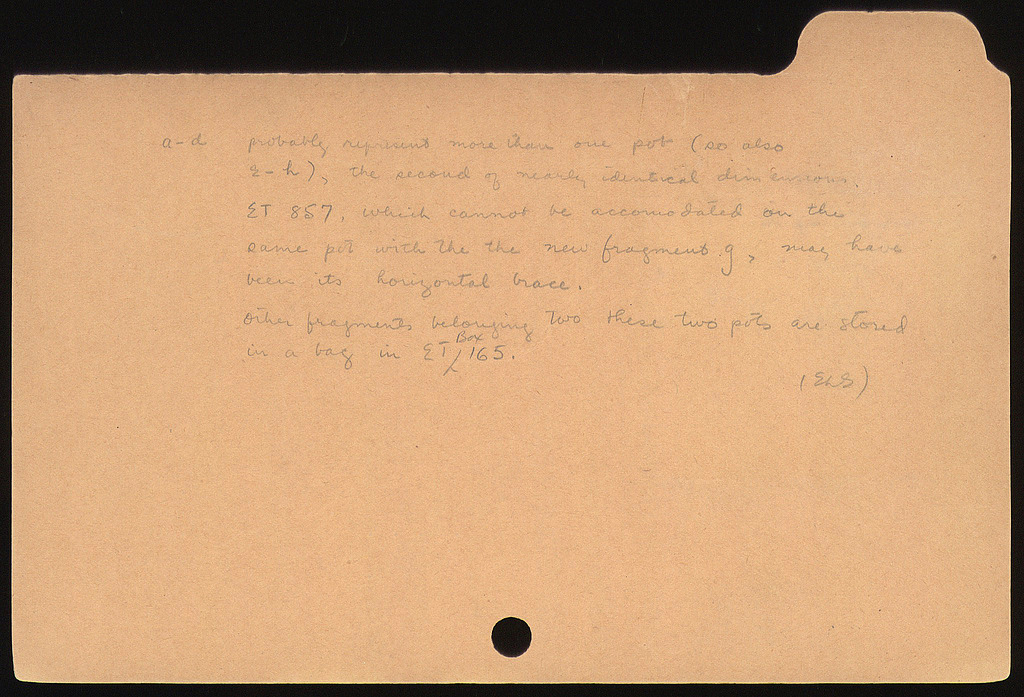 a-d probably represent more than one pot (so also
e-h), the second of nearly identical dimensions.
ET 857, which cannot be accomodated on the
same pot with the the new fragment g, may have
been its horizontal brace.
Other fragments belonging two these two pots are stored
in a bag in ET Box 165.
(ELS)